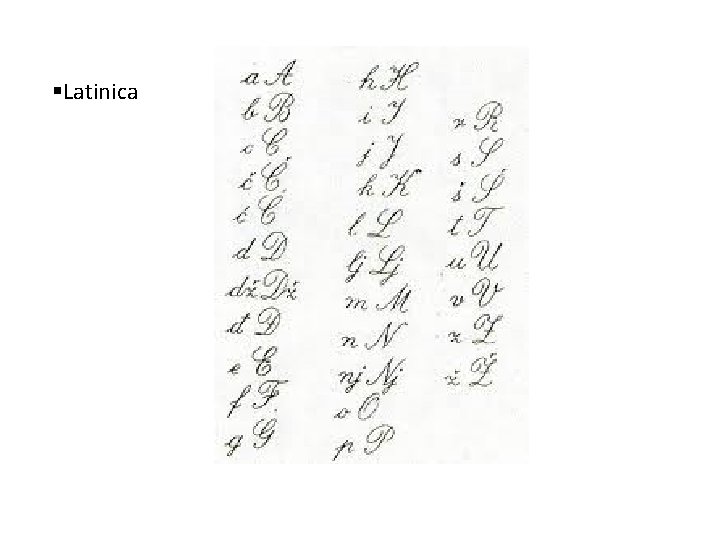 ▪Latinica
a A
b B
c C
č Č
ć Ć
d D
dž Dž
đ Đ
e E
f F
g G
h H
i I
j J
k K
l L
lj Lj
m M
n N
nj Nj
o O
p P
r R
s S
š Š
t T
u U
v V
z Z
ž Ž